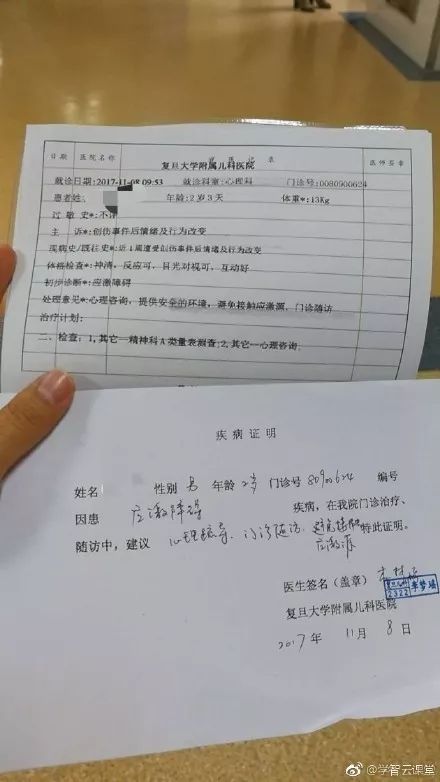 日期 医院名称 病史记录 医师签章
复旦大学附属儿科医院
就诊日期:2017-11-08 09:53 就诊科室:心理科 门诊号:0080900624
患者姓 年龄:2岁3天 体重*:13Kg
过敏史*:不详
主 诉*:创伤事件后情绪及行为改变
现病史/既往史*:近1周遭受创伤事件后情绪及行为改变
体格检查*:神清,反应可,目光对视可,互动好
初步诊断*:应激障碍
处理意见*:心理咨询,提供安全的环境,避免接触应激源,门诊随访
治疗计划:
二、检查:1,其它--精神科A类量表测查;2,其它--心理咨询
疾病证明
姓名 性别 男 年龄 2岁 门诊号 80900624 编号
因患 应激障碍 疾病,在我院门诊治疗、
随访中,建议 心理疏导、门诊随访、避免接触应激源 特此证明。
医生签名(盖章)
2322 李梦瑶
复旦大学附属儿科医院
2017年 11月 8日
@学智云课堂